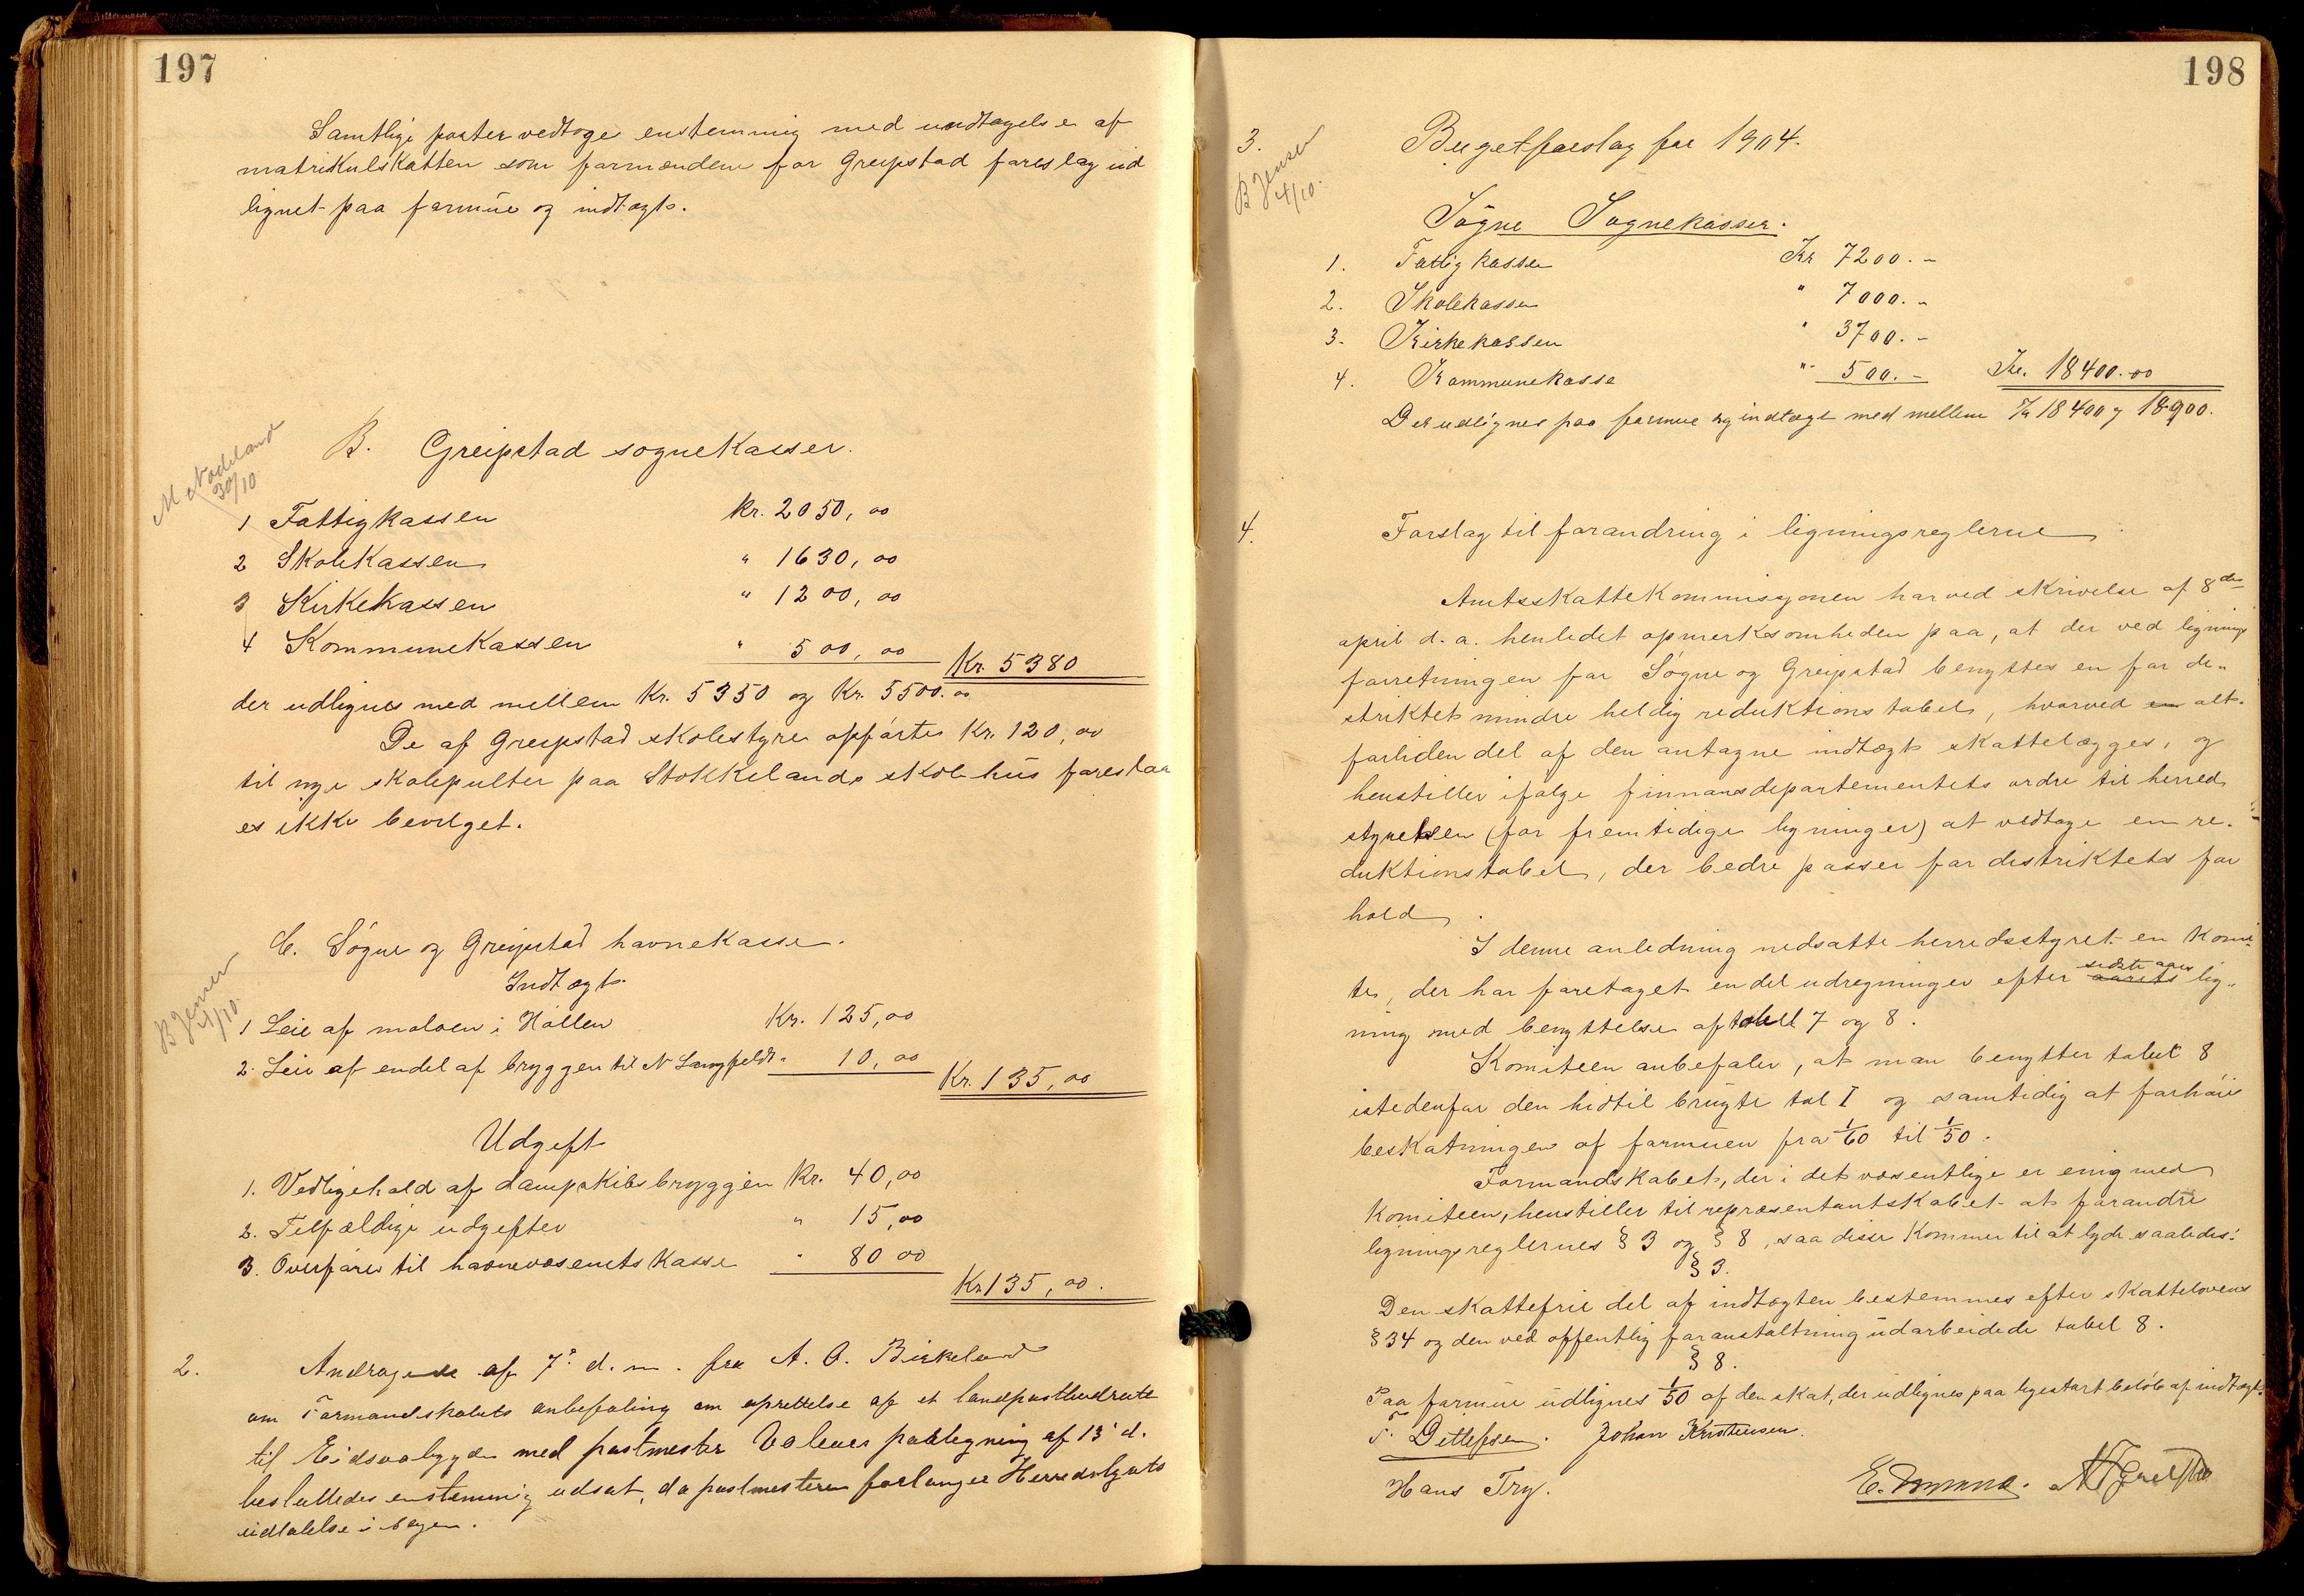 197
Samtlige poster vedtoges enstemmig med undtagelse af
matrikulskatten som formændene for Greipstad foreslag ud
lignet paa formue og indtægt.
M Nodeland
30/10
B. Greipstad sognekasser.
1 Fattigkassen Kr. 2050,00
2 Skolekassen " 1630,00
3 Kirkekassen " 1200,00
4 Kommunekassen " 500,00 Kr. 5380
der udlignes med mellem Kr. 5350 og Kr. 5500.00
De af Greipstad skolestyre opførte Kr. 120,00
til nye skolepulter paa Stokkelands skolehus foreslaa
es ikke bevilget.
B Jensen
4/10.
C. Søgne og Greipstad havnekasse.
Indtægt.
1 Leie af moloen i Høllen Kr. 125,00
2. Leie af endel af bryggen til N Langfeldt " 10,00
Kr. 135,00
Udgift
1. Vedligehold af dampskibsbryggen Kr. 40,00
2. Tilfældige udgifter " 15,00
3. Overføres til havnevæsenets kasse " 80 00
Kr 135,00.
2. Andragende af 7. d. m. fra A. O. Birkeland
om Formandskabets anbefaling om oprettelse af et landpostbudrute
til Eidsaabygden med postmester Valeurs paategning af 13 d.
besluttedes enstemmig udsat, da postmesteren forlanger Herredstyrets
udtalelse i sagen.
198
3. Bugetforslag for 1904.
B Jensen
4/10.
Søgne Sognekasser.
1. Fattigkassen Kr 7200.-
2. Skolekassen " 7000.-
3. Kirkekassen " 3700.-
4. Kommunekasse " 500.- Kr. 18400.00
Der udlignes paa formue og indtægt med mellem Kr 18400 og 18900.
4. Forslag til forandring i ligningsreglerne
Amtsskattekommisyonen har ved skrivelse af 8de
april d. a. henledet opmerksomheden paa, at der ved lignings
forretningen for Søgne og Greipstad benyttes en for di-
striktet mindre heldig reduktionstabel, hvorved en alt-
forliden del af den antagne indtægt skattelægges, og
henstiller ifølge finnansdepartementets ordre til herred
styrelsen (for fremtidige ligninger) at vedtage en re-
duktionstabel, der bedre passer for distriktets for
hold.
I denne anledning nedsatte herredsstyret en komi-
te, der har foretaget en del udregninger efter aarets sidste aars lig-
ning med benyttelse af tabel 7 og 8.
Komiteen anbefaler, at man benytter tabel 8
istedenfor den hidtil brugte tal I og samtidig at forhøie
beskatningen af formuen fra 1/60 til 1/50.
Formandskabet, der i det væsentlige er enig med
komiteen, henstiller til repræsentantskabet at forandre
ligningsreglernes § 3 og § 8, saa disse kommer til at lyde saaledes:
§ 3.
Den skattefrie del af indtægten bestemmes efter skattelovens
§ 34 og den ved offentlig foranstaltning udarbeidede tabel 8.
§ 8.
Paa formue udlignes 1/50 af den skat, der udlignes paa ligestort beløb af indtægt.
T. Ditlefsen. Johan Kristensen.
Hans Try.